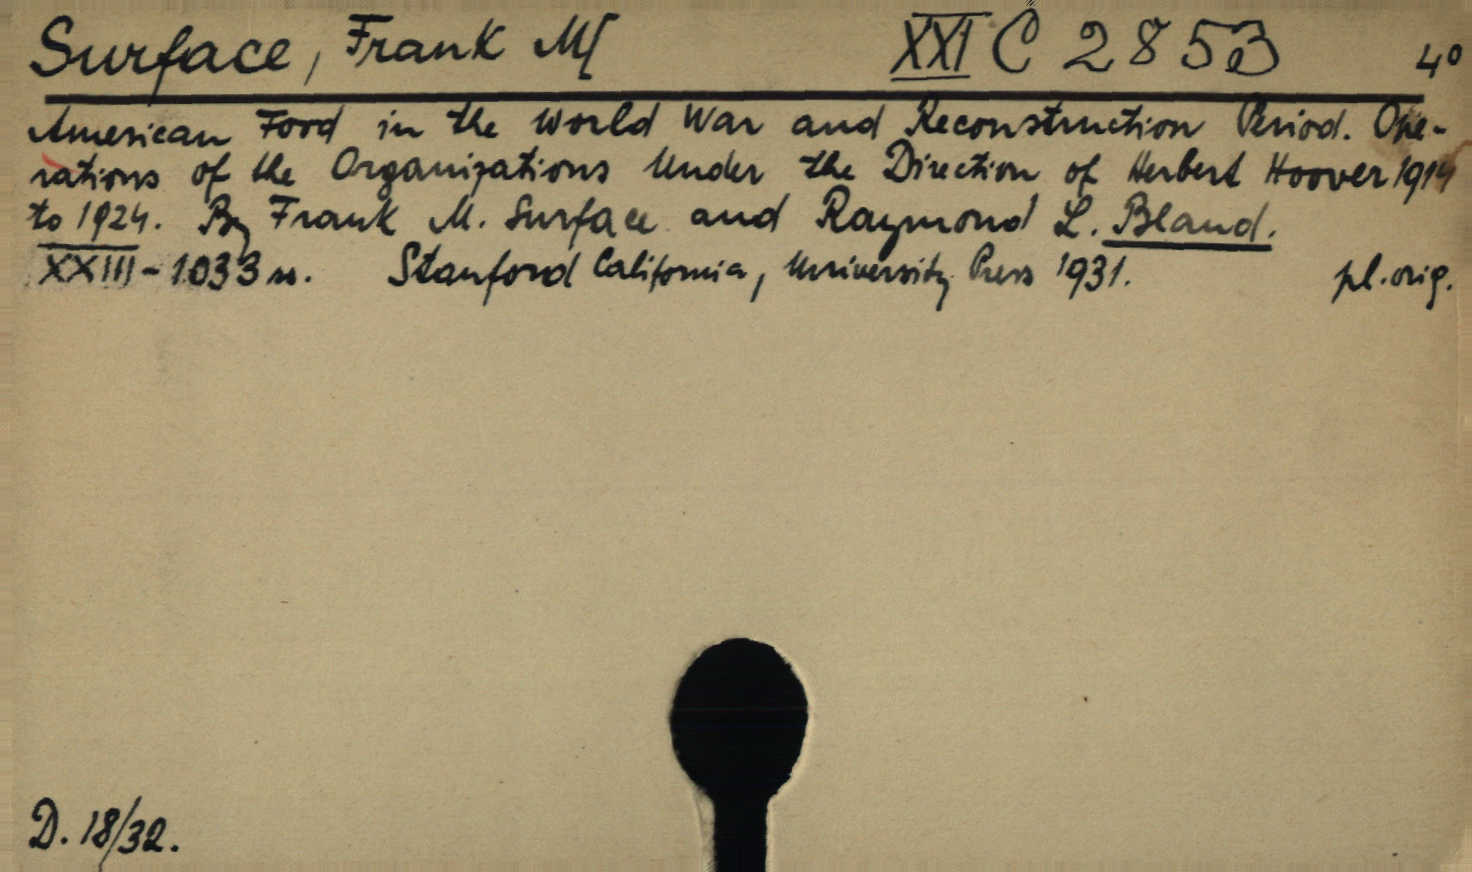 Surface, Frank M[ XXI C 2853 4º
American Food in the World War and Reconstruction Period. Ope-
rations of the Organizations Under the Direction of Herbert Hoover 1914
to 1924. By Frank M. Surface and Raymond L. Bland.
XXIII - 1033 ss. Stanford California, University Press 1931. pl. orig.
D. 18/32.